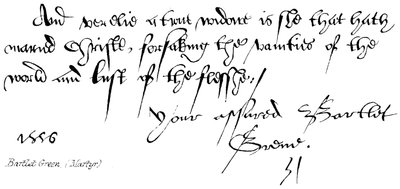 And verelie a true widowe is she that hath
maried Christe, forsaking the vanities of the
world and lust of the fleshe,
Your assured Bartlet
Grene.
1556
Bartlet Green (Martyr)